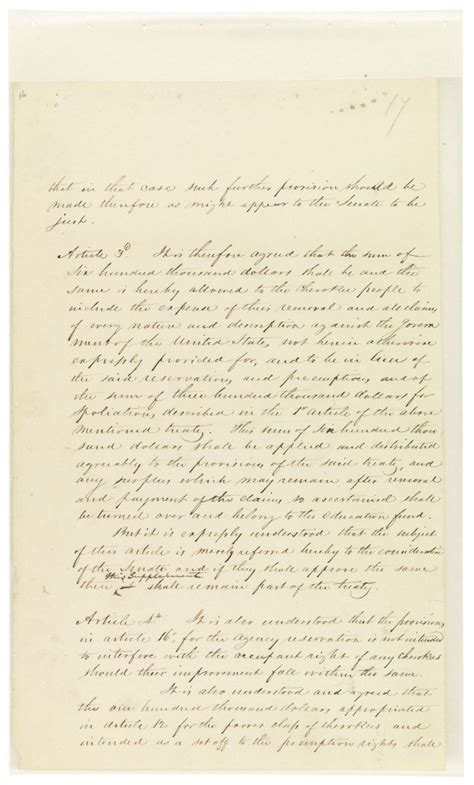 17
that in that case such further provision should be
made therefore as might appear to the Senate to be
just.
Article 3d. It is therefore agreed that the sum of
Six hundred thousand dollars shall be and the
same is hereby allowed to the Cherokee people to
include the expense of their removal and all claims
of every nature and description against the Govern
ment of the United States not herein otherwise
expressly provided for, and to be in lieu of
the said reservations and preemptions and of
the sum of three hundred thousand dollars for
spoliations described in the 1st article of the above
mentioned treaty. This sum of Six hundred thou
sand dollars shall be applied and distributed
agreeably to the provisions of the said treaty, and
any surplus which may remain after removal
and payment of the claims so ascertained shall
be turned over and belong to the education fund.
But it is expressly understood that the subject
of this article is merely referred hereby to the consideration
of the Senate and if they shall approve the same
this Supplement
then shall remain part of the treaty.
Article 4th It is also understood that the provisions
in article 16, for the agency reservation is not intended
to interfere with the occupant right of any Cherokees
should their improvement fall within the same.
It is also understood and agreed that
the one hundred thousand dollars appropriated
in article 12 for the poorer class of Cherokees and
intended as a set off to the preemption rights shall